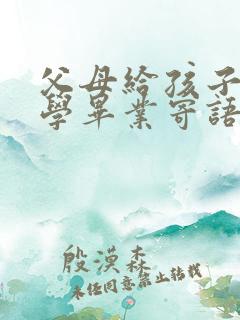 父母給孩子
學畢業寄語
殷漠森
未經同意禁止轉載